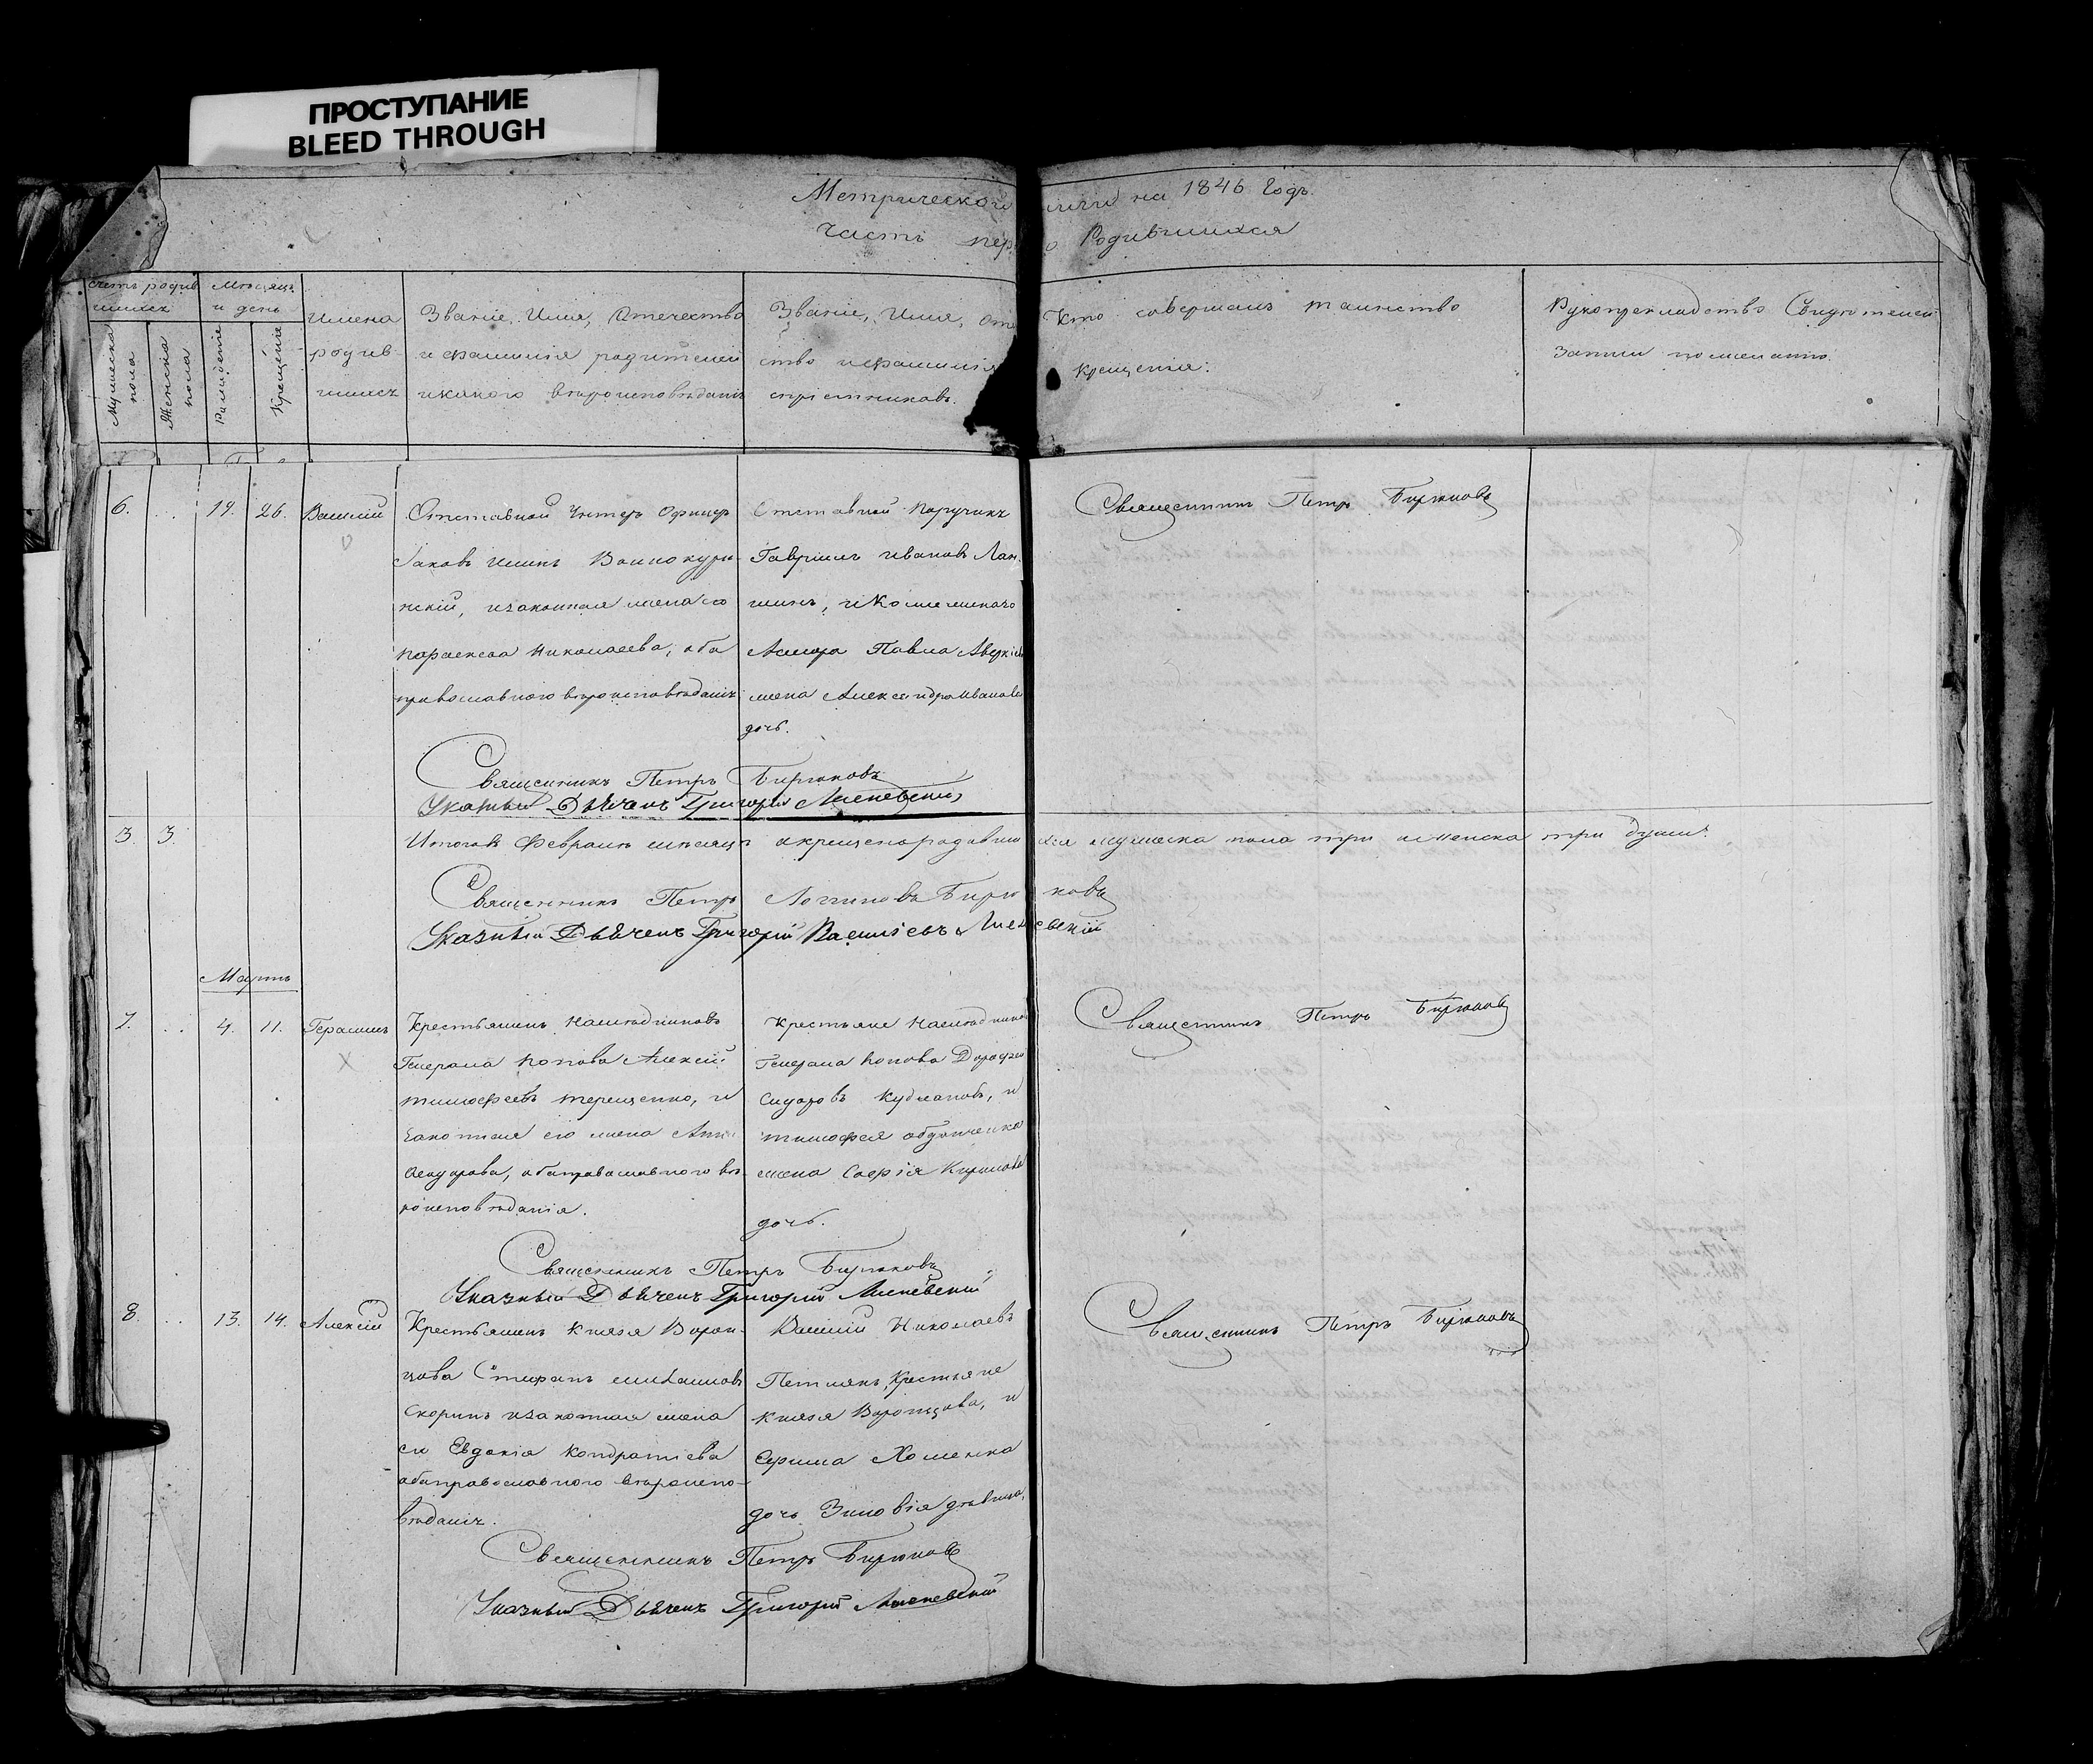 ПРОСТУПАНИЕ
BLEED THROUGH
Метрической книги на 1846 Годъ.
Часть пер о Родившихся
Счетъ родив
шихся
Мѣсяцъ
и день
Мужеска
пола
Женска
пола
Рожденіе
Крещеніе
Имена
родив
шихся
Званіе, Имя, Отечество
и фамилія родителей
и какого вѣроисповѣданія
Званіе, Имя, Оте
ство и фамилія
воспріемниковъ.
Кто совершалъ таинство
крещенія:
Рукоприкладство Свидѣтелей
Записи по желанію.
6. .. 19. 26. Василій
Отставной Унтеръ Офицеръ
Іаковъ
женскій, и законная жена его
Параскева Николаева, оба
православного вѣроисповѣданія
Отставной Поручикъ
Гавріилъ Ивановъ Лан
шинъ, и Колежскаго
Асесора Павла Аверкіева
жена Александра Иванова
дочь.
Священникъ Петръ Бирюковъ
Священникъ Петръ Бирюковъ
Указный Дьячекъ Григорій
3. 3. Итого въ Февралѣ мѣсяцѣ окрещено родивши хся мужеска пола три и женска три души.
Священникъ Петръ Логгиновъ Бирю ковъ
Указный Дьячекъ Григорій Василіевъ
Мартъ
7. .. 4. 11. Герасимъ
Крестьянинъ Наслѣдниковъ
Генерала Попова Алексій
Тимофеевъ Терещенко, и
законная его жена Анна
Феодорова, оба православного вѣ
роисповѣданія.
Крестьяне Наслѣдников
Генерала Попова Дорофей
Сидоровъ Кудлановъ, и
Тимофея
жена Софія Кирилова
дочь.
Священникъ Петръ Бирюковъ
Священникъ Петръ Бирюковъ
Указный Дьячекъ Григорій
8. .. 13. 14. Алексій
Крестьянинъ Князя Ворон
цова Стефанъ Михаиловъ
Скорикъ и законная жена
его Евдокія Кондратіева
оба православного вѣроиспо
вѣданія.
Василій Николаевъ
Петлякъ, Крестьяне
Князя Воронцова, и
Ефима Хоменка
дочь Зиновія дѣвица.
Священникъ Петръ Бирюковъ
Священникъ Петръ Бирюковъ
Указный Дьячекъ Григорій